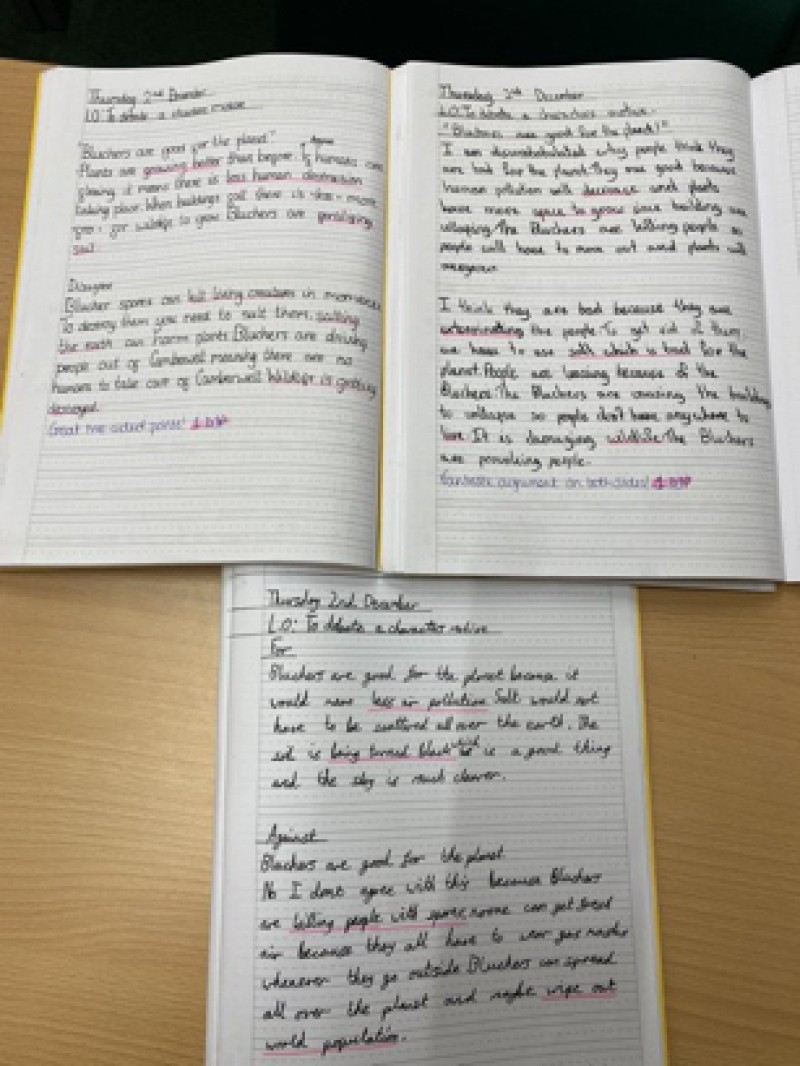 Thursday 2nd December
LO: To debate a characters motive
"Bluchers are good for the planet"
Agree
Plants are growing better than before. If humans are
it means there is less human destruction
taking place. When buildings fall there is more
for wildlife to grow Bluchers are
soil.
Disagree
Blucher spores can kill living creatures in
To destroy them you need to salt them, salting
the earth can harm plants. Bluchers are driving
people out of Camberwell meaning there are no
humans to take care of Camberwell wildlife is getting
destroyed.
Great two sided points!
Thursday 2nd December
LO: To debate a characters motive.
"Bluchers are good for the planet!"
I am why people think they
are bad for the planet. They are good because
human pollution will decrease and plants
have more space to grow since building are
The Bluchers are killing people so
people will have to move out and plants will
I think they are bad because they are
exterminating the people. To get rid of them,
we have to use salt which is bad for the
planet. People are leaving because of the
Bluchers. The Bluchers are causing the building
to collapse so people don't have anywhere to
live. It is damaging wildlife. The Bluchers
are provoking people.
Fantastic argument on both sides!
Thursday 2nd December
L.O: To debate a character motive
For
Bluchers are good for the planet because it
would mean less air pollution. Salt would not
have to be scattered all over the earth. The
soil is being turned black which is a good thing
and the sky is much clearer.
Against
Bluchers are good for the planet
No I dont agree with this because Bluchers
are killing people with spores noone can get fresh
air because they all have to wear gas masks
whenever they go outside Bluchers can spread
all over the planet and maybe wipe out
world population.